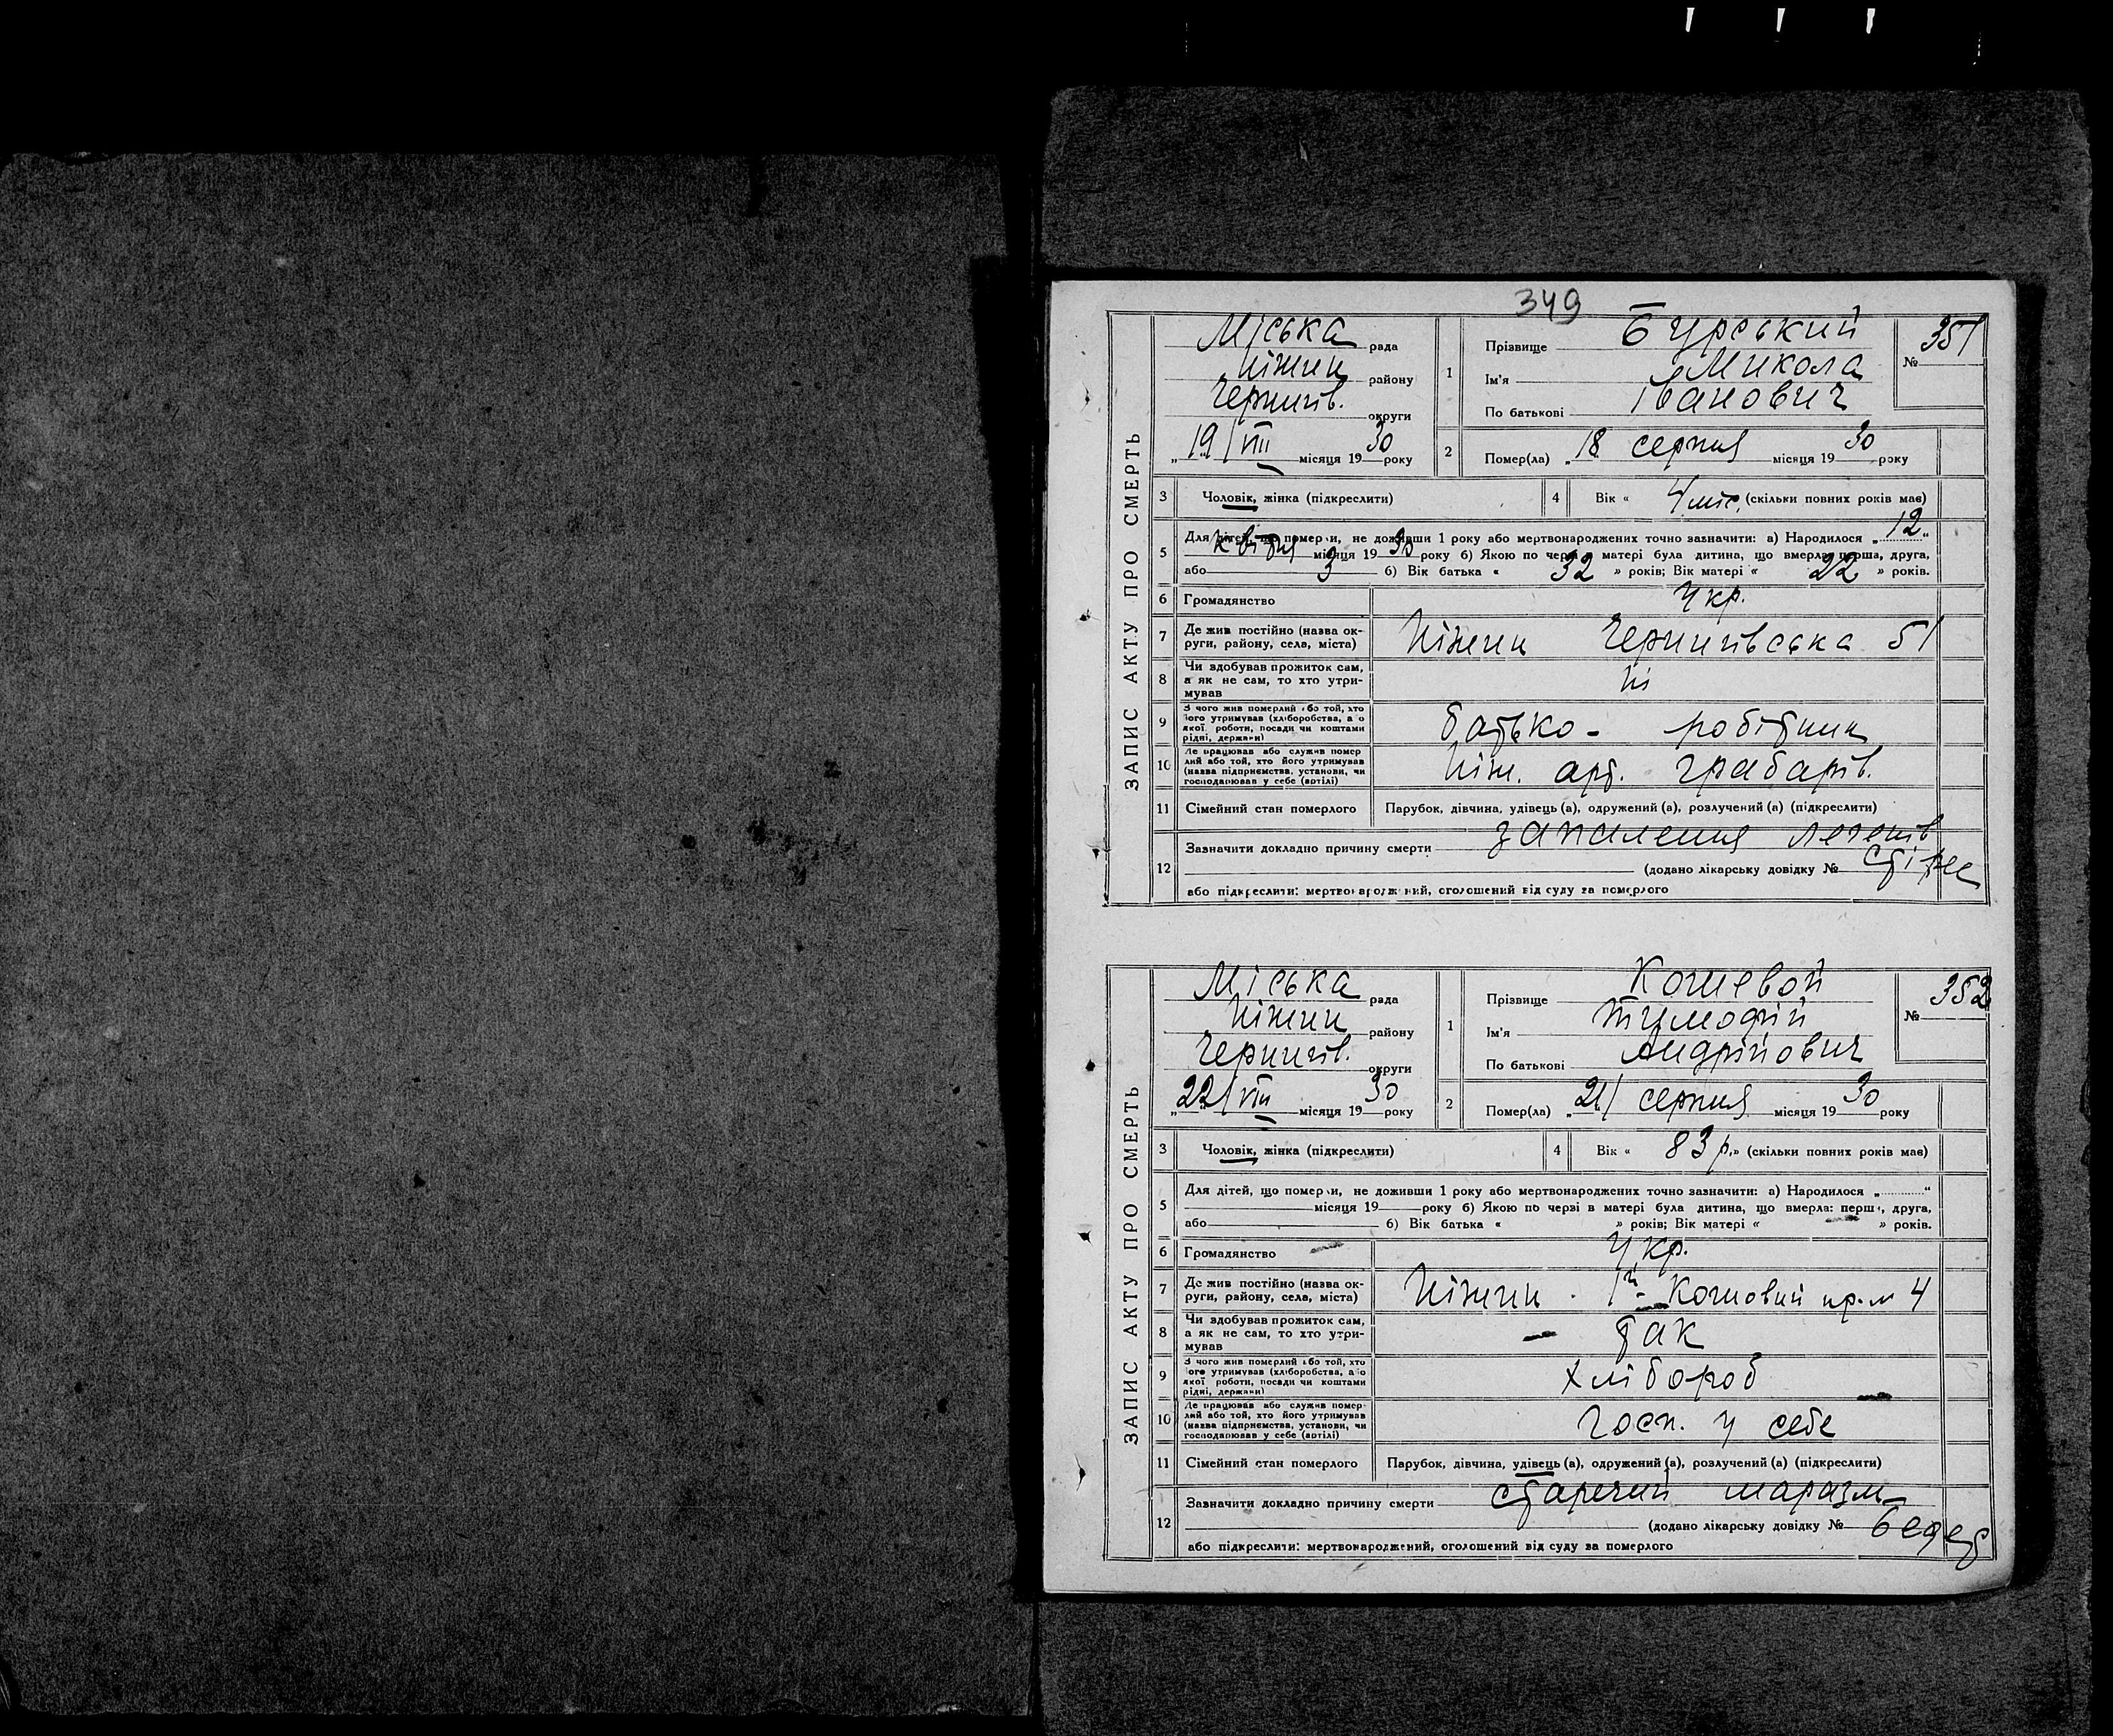 349
ЗАПИС АКТУ ПРО СМЕРТЬ
Міська рада
Ніжин району
Чернигів. округи
„19/VIII місяця 1930 року
1
Прізвище Бурський
Ім'я Микола
По батькові Іванович
№ 351
2 Помер(ла) „18 серпня місяця 1930 року
3 Чоловік, жінка (підкреслити)
4 Вік « 4 міс. (скільки повних років має)
5 Для дітей, що померли, не доживши 1 року або мертвонароджених точно зазначити: а) Народилося „12“
квітня місяця 1930 року б) Якою по черзі в матері була дитина, що вмерла: перша, друга,
або 3 б) Вік батька « 32 » років; Вік матері « 22 » років.
6 Громадянство Укр.
7 Де жив постійно (назва округи, району, села, міста) Ніжин Чернигівська 51
8 Чи здобував прожиток сам,
а як не сам, то хто утримував
Ні
9 З чого жив померлий або той, хто
його утримував (хліборобства, або
якої роботи, посади чи коштами
рідні, держави)
батько - робітник
10 Де працював або служив померлий або той, хто його утримував
(назва підприємства, установи, чи
господарював у себе (артілі)
Ніж. арт. грабарів.
11 Сімейний стан померлого Парубок, дівчина, удівець (а), одружений (а), розлучений (а) (підкреслити)
12 Зазначити докладно причину смерти запалення легенів
(додано лікарську довідку №
або підкреслити: мертвонароджений, оголошений від суду за померлого
ЗАПИС АКТУ ПРО СМЕРТЬ
Міська рада
Ніжин району
Чернигів. округи
„22/VIII місяця 1930 року
1
Прізвище Кошевой
Ім'я Тимофій
По батькові Андрійович
№ 352
2 Помер(ла) „21/ серпня місяця 1930 року
3 Чоловік, жінка (підкреслити)
4 Вік « 83 р.» (скільки повних років має)
5 Для дітей, що померли, не доживши 1 року або мертвонароджених точно зазначити: а) Народилося „ “
місяця 19 року б) Якою по черзі в матері була дитина, що вмерла: перша, друга,
або б) Вік батька « » років; Вік матері « » років.
6 Громадянство Укр.
7 Де жив постійно (назва округи, району, села, міста) Ніжин. 1й - Кошовий пр. № 4
8 Чи здобував прожиток сам,
а як не сам, то хто утримував
- так
9 З чого жив померлий або той, хто
його утримував (хліборобства, або
якої роботи, посади чи коштами
рідні, держави)
хлібороб
10 Де працював або служив померлий або той, хто його утримував
(назва підприємства, установи, чи
господарював у себе (артілі)
Госп. у себе
11 Сімейний стан померлого Парубок, дівчина, удівець (а), одружений (а), розлучений (а) (підкреслити)
12 Зазначити докладно причину смерти старечий маразм
(додано лікарську довідку №
або підкреслити: мертвонароджений, оголошений від суду за померлого